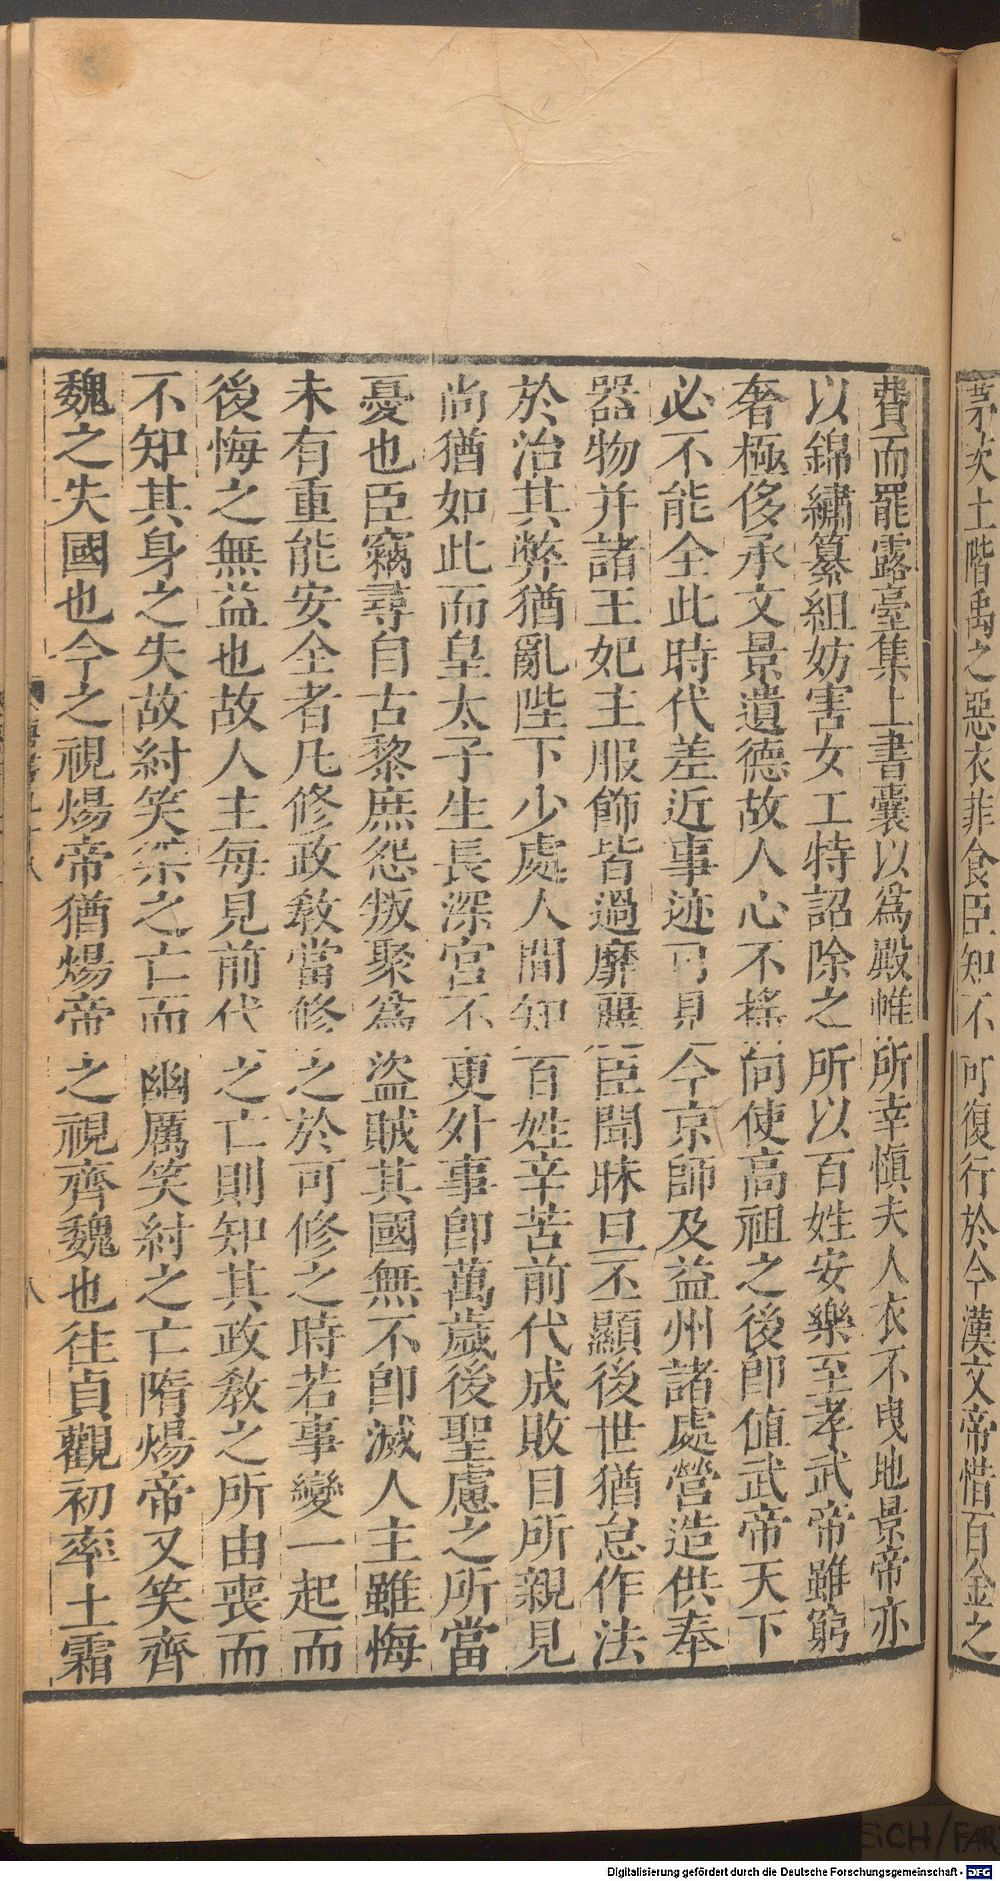 茅茨土階禹之惡衣菲食臣知不可復行於今漢文帝惜百金之
費而罷露臺集上書囊以爲殿帷所幸愼夫人衣不曳地景帝亦
以錦繡纂組妨害女工特詔除之所以百姓安樂至孝武帝雖窮
奢極侈承文景遺德故人心不搖向使高祖之後卽値武帝天下
必不能全此時代差近事迹可見今京師及益州諸處營造供奉
器物并諸王妃主服飾皆過靡麗臣聞昧旦丕顯後世猶怠作法
於治其弊猶亂陛下少處人間知百姓辛苦前代成敗目所親見
尚猶如此而皇太子生長深宮不更外事卽萬歲後聖慮之所當
憂也臣竊尋自古黎庶怨叛聚爲盜賊其國無不卽滅人主雖悔
未有重能安全者凡修政敎當修之於可修之時若事變一起而
後悔之無益也故人主每見前代之亡則知其政敎之所由喪而
不知其身之失故紂笑桀之亡而幽厲笑紂之亡隋煬帝又笑齊
魏之失國也今之視煬帝猶煬帝之視齊魏也往貞觀初率土霜
八
Digitalisierung gefördert durch die Deutsche Forschungsgemeinschaft - DFG